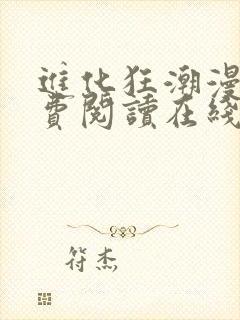 進化狂潮漫
費閱讀在綫
符杰